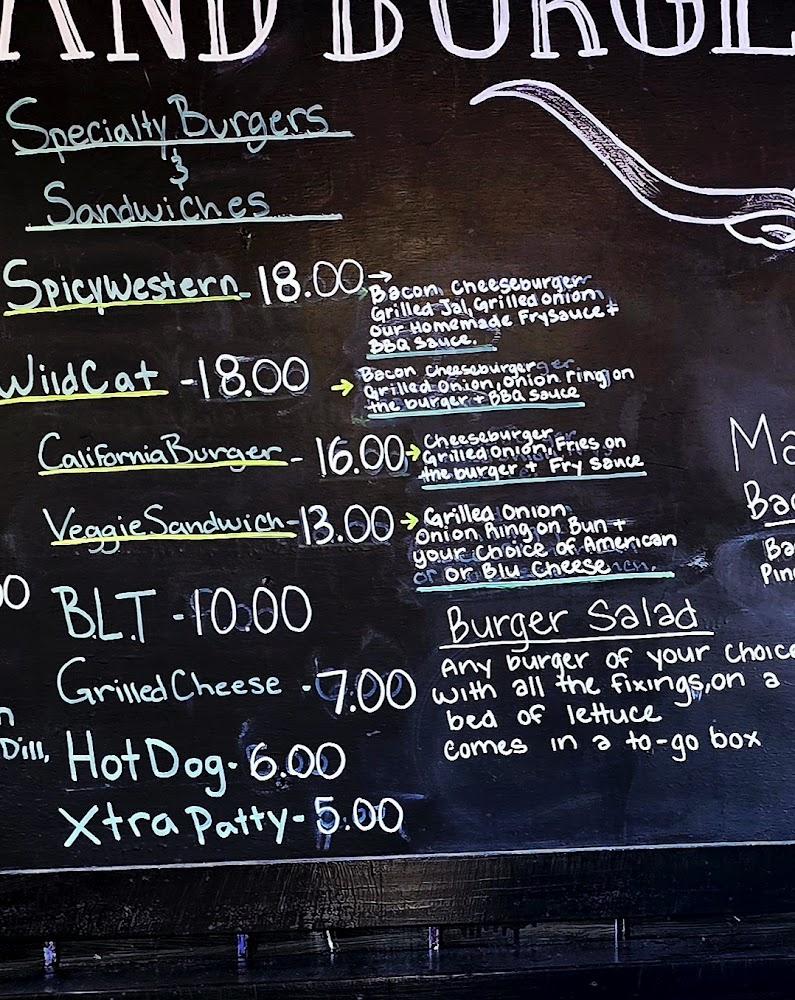 AND BURGE
Specialty Burgers
&
Sandwiches
SpicyWestern - 18.00 →
Bacon Cheeseburger
Grilled Jal, Grilled onion
our Homemade Frysauce +
BBQ Sauce.
WildCat - 18.00 →
Bacon Cheeseburger
Grilled Onion, Onion ring on
the burger + BBQ Sauce
California Burger - 16.00 →
Cheeseburger
Grilled Onion, Fries on
the burger + Fry Sauce
Veggie Sandwich - 13.00 →
Grilled Onion
Onion Ring on Bun +
your Choice of American
or or Blu Cheese
B.L.T - 10.00
Grilled Cheese - 7.00
Hot Dog - 6.00
Xtra Patty - 5.00
Burger Salad
Any burger of your choice
with all the fixings, on a
bed of lettuce
comes in a to-go box
Dill,